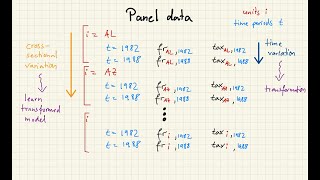 Panel data
units i
time periods t
cross-
sectional
variation
learn
transformed
model
i = AL
t = 1982 fr AL, 1982 tax AL, 1982
t = 1988 fr AL, 1988 tax AL, 1988
i = AZ
t = 1982 fr AZ, 1982 tax AZ, 1982
t = 1988 fr AZ, 1988 tax AZ, 1988
i
t = 1982 fr i, 1982 tax i, 1982
t = 1988 fr i, 1988 tax i, 1988
time
variation
transformation